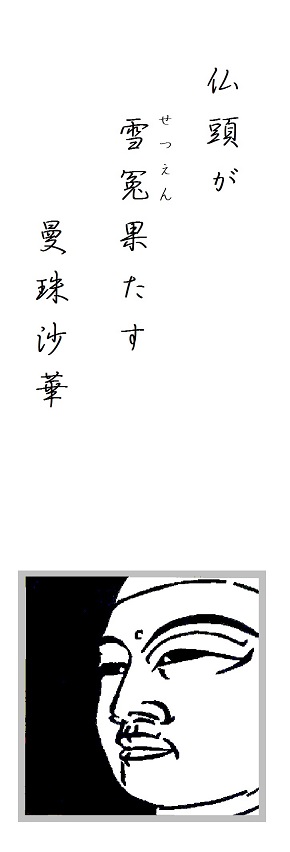 仏頭が
雪冤果たす
せつえん
曼珠沙華